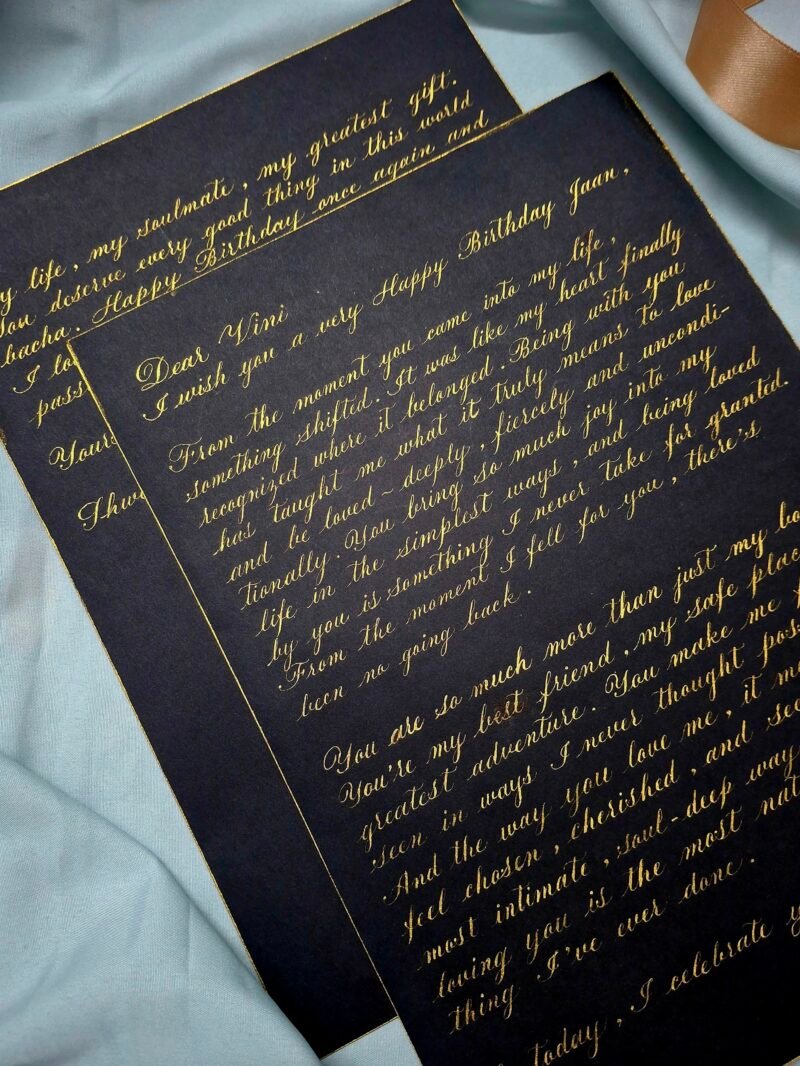 Dear Vini
I wish you a very Happy Birthday Jaan,
From the moment you came into my life,
something shifted. It was like my heart finally
recognized where it belonged. Being with you
has taught me what it truly means to love
and be loved ~ deeply, fiercely and uncondi-
tionally. You bring so much joy into my
life in the simplest ways, and being loved
by you is something I never take for granted.
From the moment I fell for you, there's
been no going back.
You are so much more than just my bo
You're my best friend, my safe plac
greatest adventure. You make me
seen in ways I never thought pos
And the way you love me, it m
feel chosen, cherished, and see
most intimate, soul-deep way
loving you is the most nat
thing I've ever done.
today, I celebrate y
y life, my soulmate, my greatest gift.
You deserve every good thing in this world
bacha. Happy Birthday once again and
I lo
pass
Your